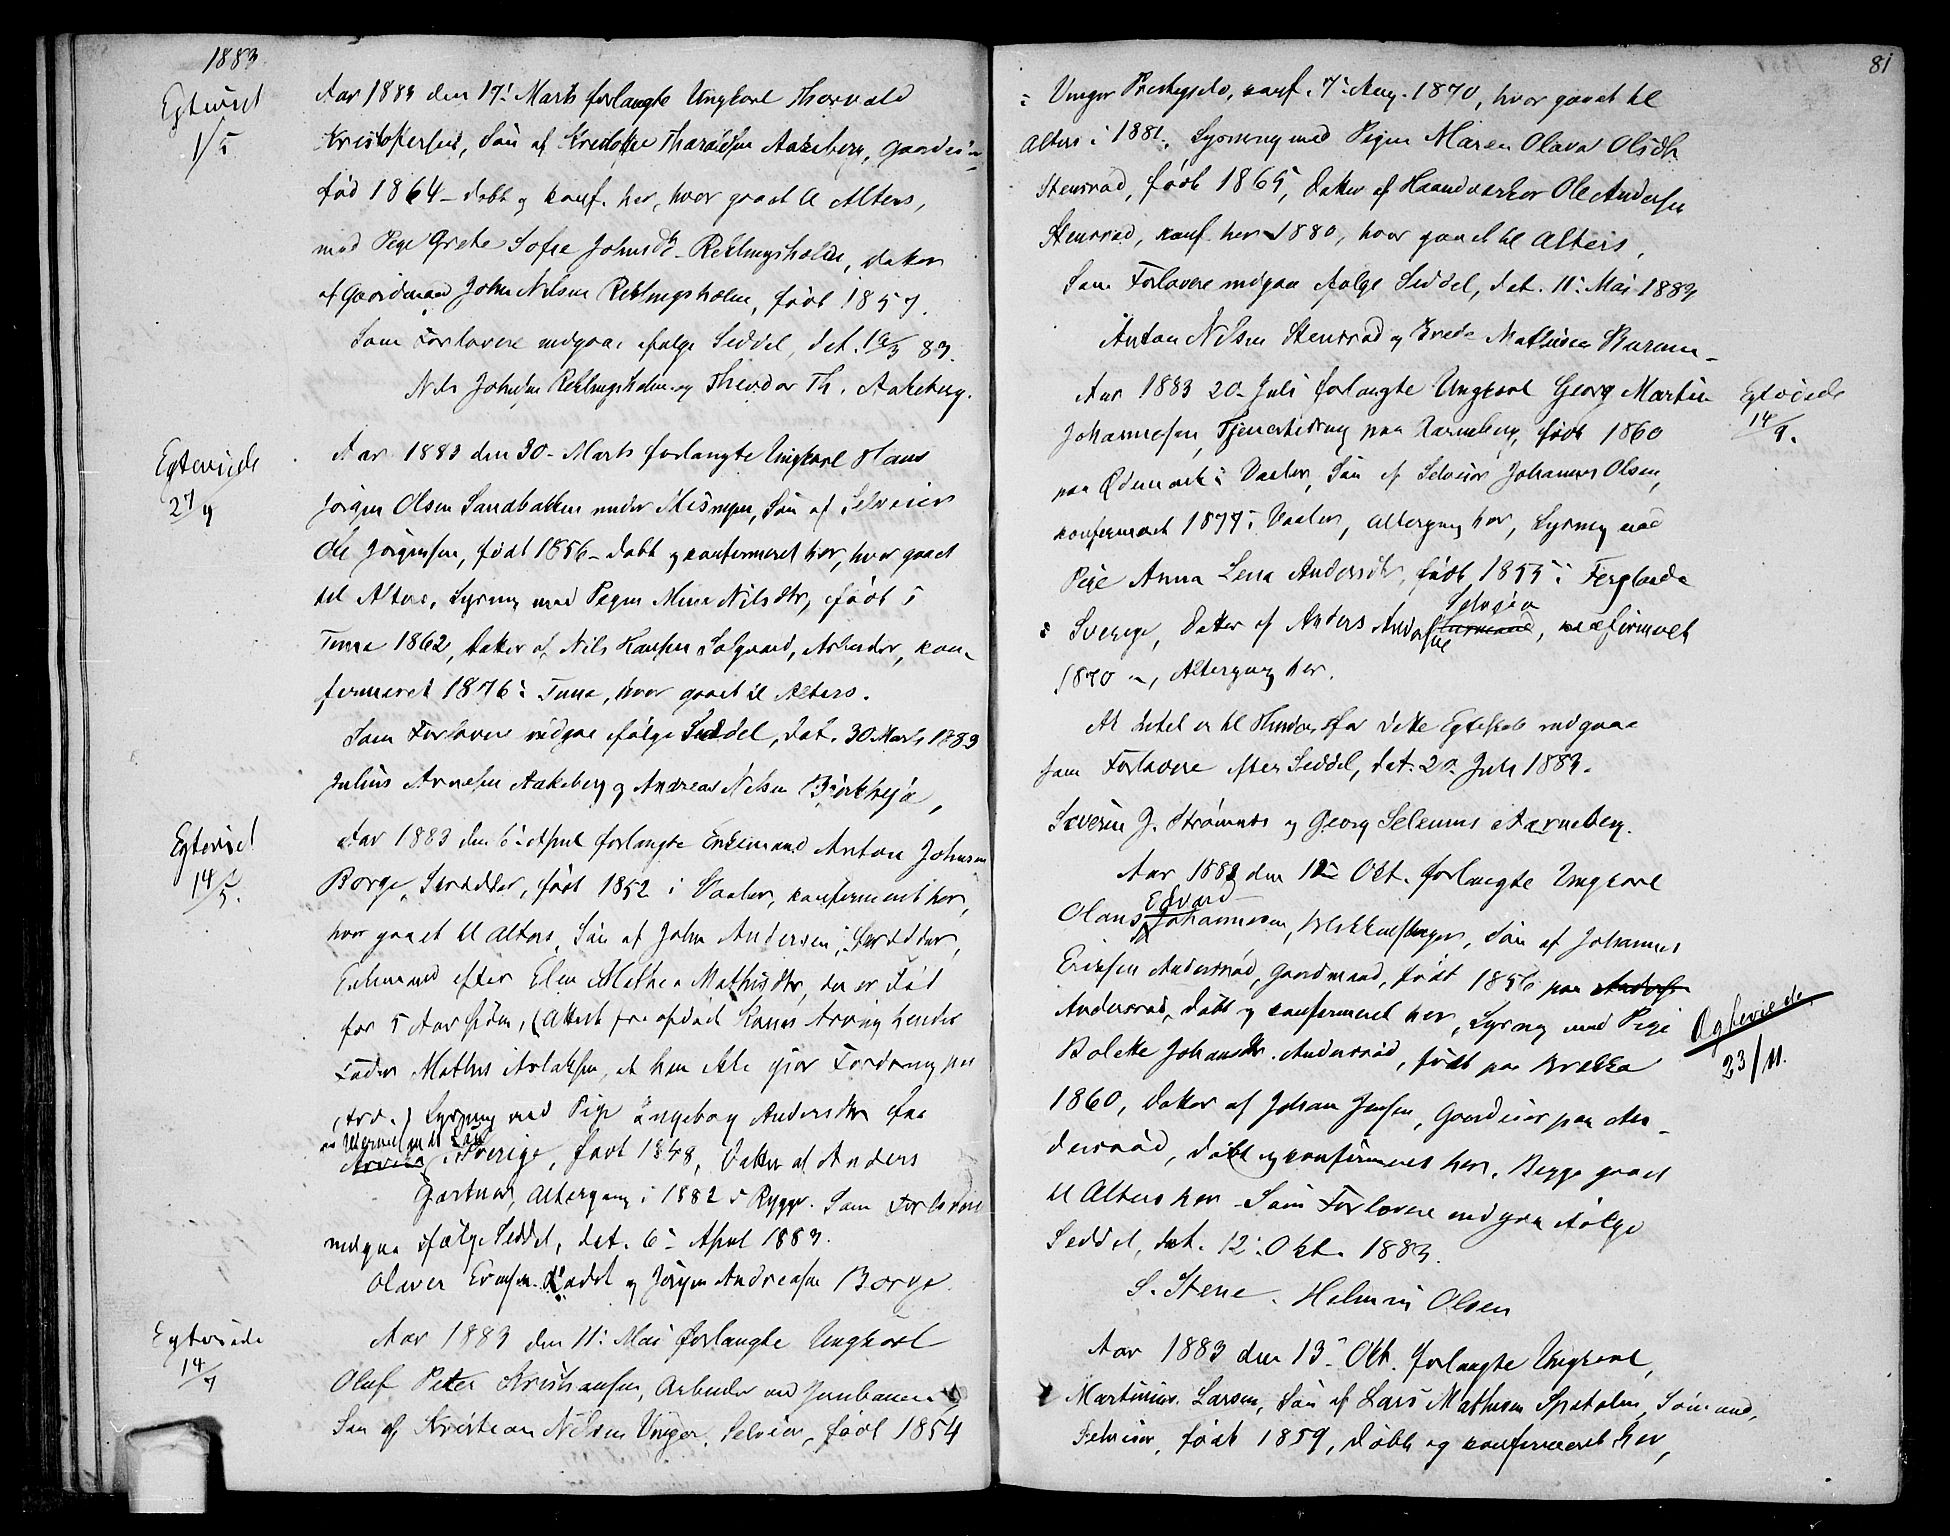 1883
Egteviet
1/5
Aar 1883 den 17: Marts forlangte Ungkarl Thorvald
Kristofersen, Sön af Kristoffer Aakeberg, Gaardeier
fød 1864 - døbt og konf. her, hvor gaaet til Alters,
med Pige Grethe Sofie Johnsdtr Reklingsholm, Datter
af Gaardmand John Nilsen Reklingsholm, født 1857.
Som Forlovere vedgaae ifølge Seddel, dat. 83.
Nils Johnsen Reklingsholm og Theodor Th. Aakeberg.
Egteviede
27/4
Aar 1883 den 30- Marts forlangte Ungkarl Hans
Jörgen Olsen Sandbakken under Misingen, Sön af Selveier
Ole Jörgensen, født 1856 - døbt og konfirmeret her, hvor gaaet
til Alters, Lysning med Pigen Mina Nilsdtr, født i
Tune 1862, Datter af Nils Hansen Solgaard, Arbeider, kon-
firmeret 1876 i Tune, hvor gaaet til Alters.
Som Forlovere vedgaae ifølge Seddel, dat. 30 Marts 1883
Julius Arnesen Aakeberg og Andreas Nilsen
Egteviet
14/5.
Aar 1883 den 6: April forlangte Enkemand Anton Johnsen
Borge, Skrædder, født 1852 i Vaaler, konfirmeret her,
hvor gaaet til Alters, Sön af John Andersen, Skrædder,
Enkemand efter Elen Mathea Mathisdtr, der er død
for 5 Aar siden, (Attest fra afdød Kones Arving hendes
Fader Mathis Aslaksen, at han ikke gjør Fordring paa
Arv.) Lysning med Pige Ingeborg Andersdtr fra
i Sverige, født 1848, Datter af Anders
Gartner, Altergang i 1882 i Rygge. Som Forlovere
vedgaa ifølge Seddel, dat. 6: April 1883.
Oliver Evensen og Jörgen Andreasen Borge.
Egteviede
14/7
Aar 1883 den 11: Mai forlangte Ungkarl
Oluf Peter Kristiansen, Arbeider ved Jernbanen
Sön af Kristian Nilsen Unger, Selveier, født 1854
81
i Unger Prestegjeld, konf. 7: Aug. 1870, hvor gaaet til
Alters i 1881, Lysning med Pigen Maren Olava Olsdtr
Stensrød, født 1865, Datter af Haandverker Ole Andersen
Stensrød, konf. her 1880, hvor gaaet til Alters,
Som Forlovere vedgaa ifølge Seddel, dat. 11: Mai 1883
Anton Nilsen Stensrød og Brede Mathisen
Aar 1883 20- Juli forlangte Ungkarl Georg Martin
Egteviede
14/9.
Johannesen, Tjenestedreng paa Karneberg, født 1860
paa Ødemark i Vaaler, Sön af Selveier Johannes Olsen,
konfirmeret 1877 i Vaaler, Altergang her, Lysning med
Pige Anna Lena Andersdtr, født 1855 i Ferglanda
Selveier
i Sverige, Datter af Anders Andersen, konfirmeret
1870 -, Altergang her.
At intet er til Hinder for dette Egteskab vedgaae
som Forlovere efter Seddel, dat. 20. Juli 1883.
Severin J. Strömnes og Georg Selenius Karneberg.
Aar 1883 den 12- Okt. forlangte Ungkarl
Edvard
Olaus Johannesen, Blikkenslager, Sön af Johannes
Eriksen Andersrød, Gaardmand, født 1856 paa
Andersrød, Døbt og konfirmeret her, Lysning med Pige
Egteviede
23/11.
Bolette Johansdtr. Andersrød, født paa Brekka
1860, Datter af Johan Jensen, Gaardeier paa An-
dersrød, döbt og konfirmeret her. Begge gaaet
til Alters her. Som Forlovere vedgaa ifølge
Seddel, dat. 12: Okt. 1883.
S. Stene. Helmin Olsen
Aar 1883 den 13- Okt. forlangte Ungkarl,
Martinius Larsen, Sön af Lars Mathisen Spetalen, Sömand,
Selveier, født 1859, døbt og konfirmeret her,